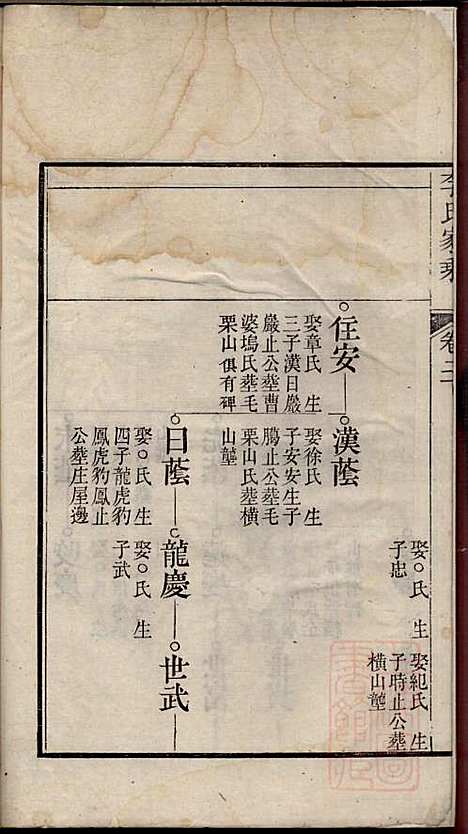 李氏家乘
卷二
娶○氏 生
子忠
娶紀氏 生
子時止公塟
橫山塋
○任安
娶章氏 生
三子漢日嚴
嚴止公塟曹
婆塢氏塟毛
栗山俱有碑
漢蔭
娶徐氏 生
子安安生子
騰止公塟毛
栗山氏塟橫
山塋
○日蔭
娶○氏 生
四子龍虎豹
鳳虎豹鳳止
公塟庄屋邊
○龍慶
娶○氏 生
子武
○世武